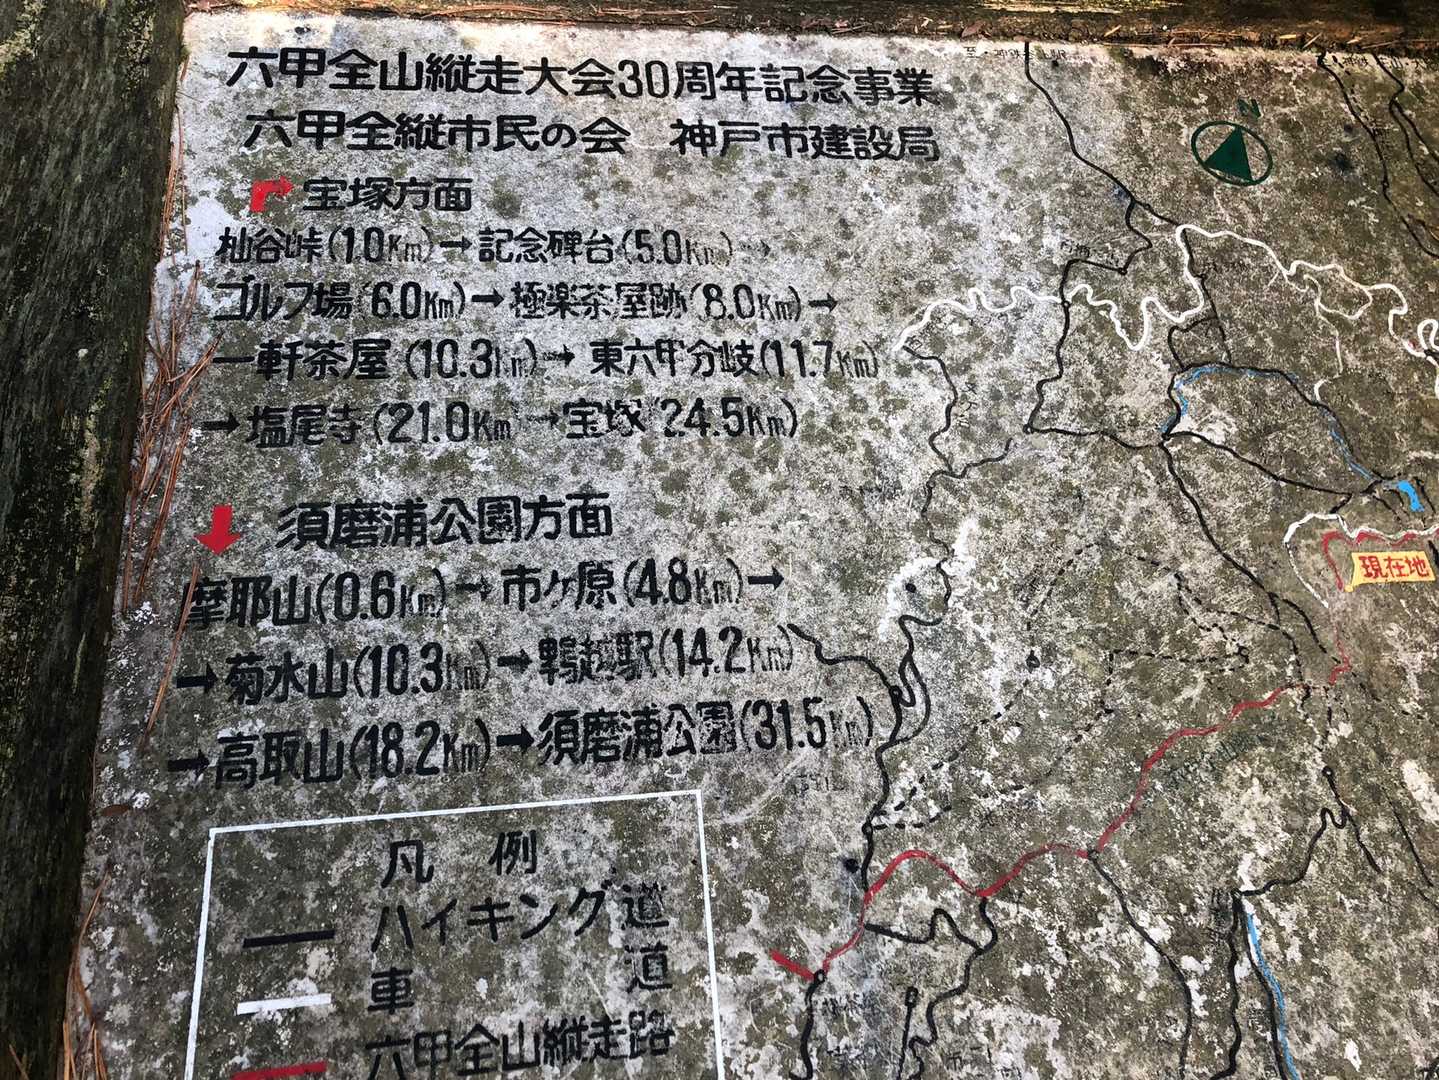 六甲全山縦走大会30周年記念事業
六甲全縦市民の会　神戸市建設局
宝塚方面
杣谷峠(1.0Km)→記念碑台(5.0Km)→
ゴルフ場(6.0Km)→極楽茶屋跡(8.0Km)→
一軒茶屋(10.3Km)→東六甲分岐(11.7Km)
→塩尾寺(21.0Km)→宝塚(24.5Km)
須磨浦公園方面
摩耶山(0.6Km)→市ケ原(4.8Km)→
→菊水山(10.3Km)→鵯越駅(14.2Km)
→高取山(18.2Km)→須磨浦公園(31.5Km)
凡例
ハイキング道
車道
六甲全山縦走路
N
現在地